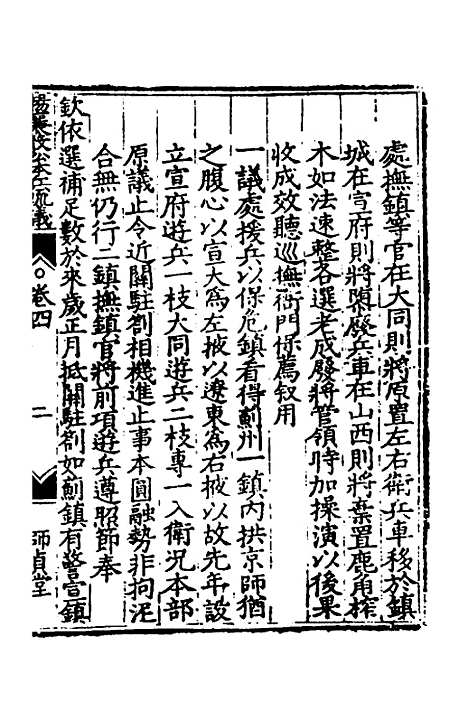 處撫鎮等官在大同則將原置左右衛兵車移於鎮
城在宣府則將隳廢兵車在山西則將棄置鹿角榨
木如法速整各選老成廢將管領時加操演以後果
收成效聽巡撫衙門保薦叙用
一議處援兵以保危鎮看得薊州一鎮內拱京師猶
之腹心以宣大為左掖以遼東為右掖以故先年設
立宣府遊兵一枝大同遊兵二枝專一入衛況本部
原議止令近關駐劄相機進止事本圓融勢非拘泥
合無仍行二鎮撫鎮官將前項遊兵遵照節奉
欽依選補足數於來歲正月抵關駐劄如薊鎮有警宣鎮
楊襄毅公本兵疏議
卷四
二
師貞堂